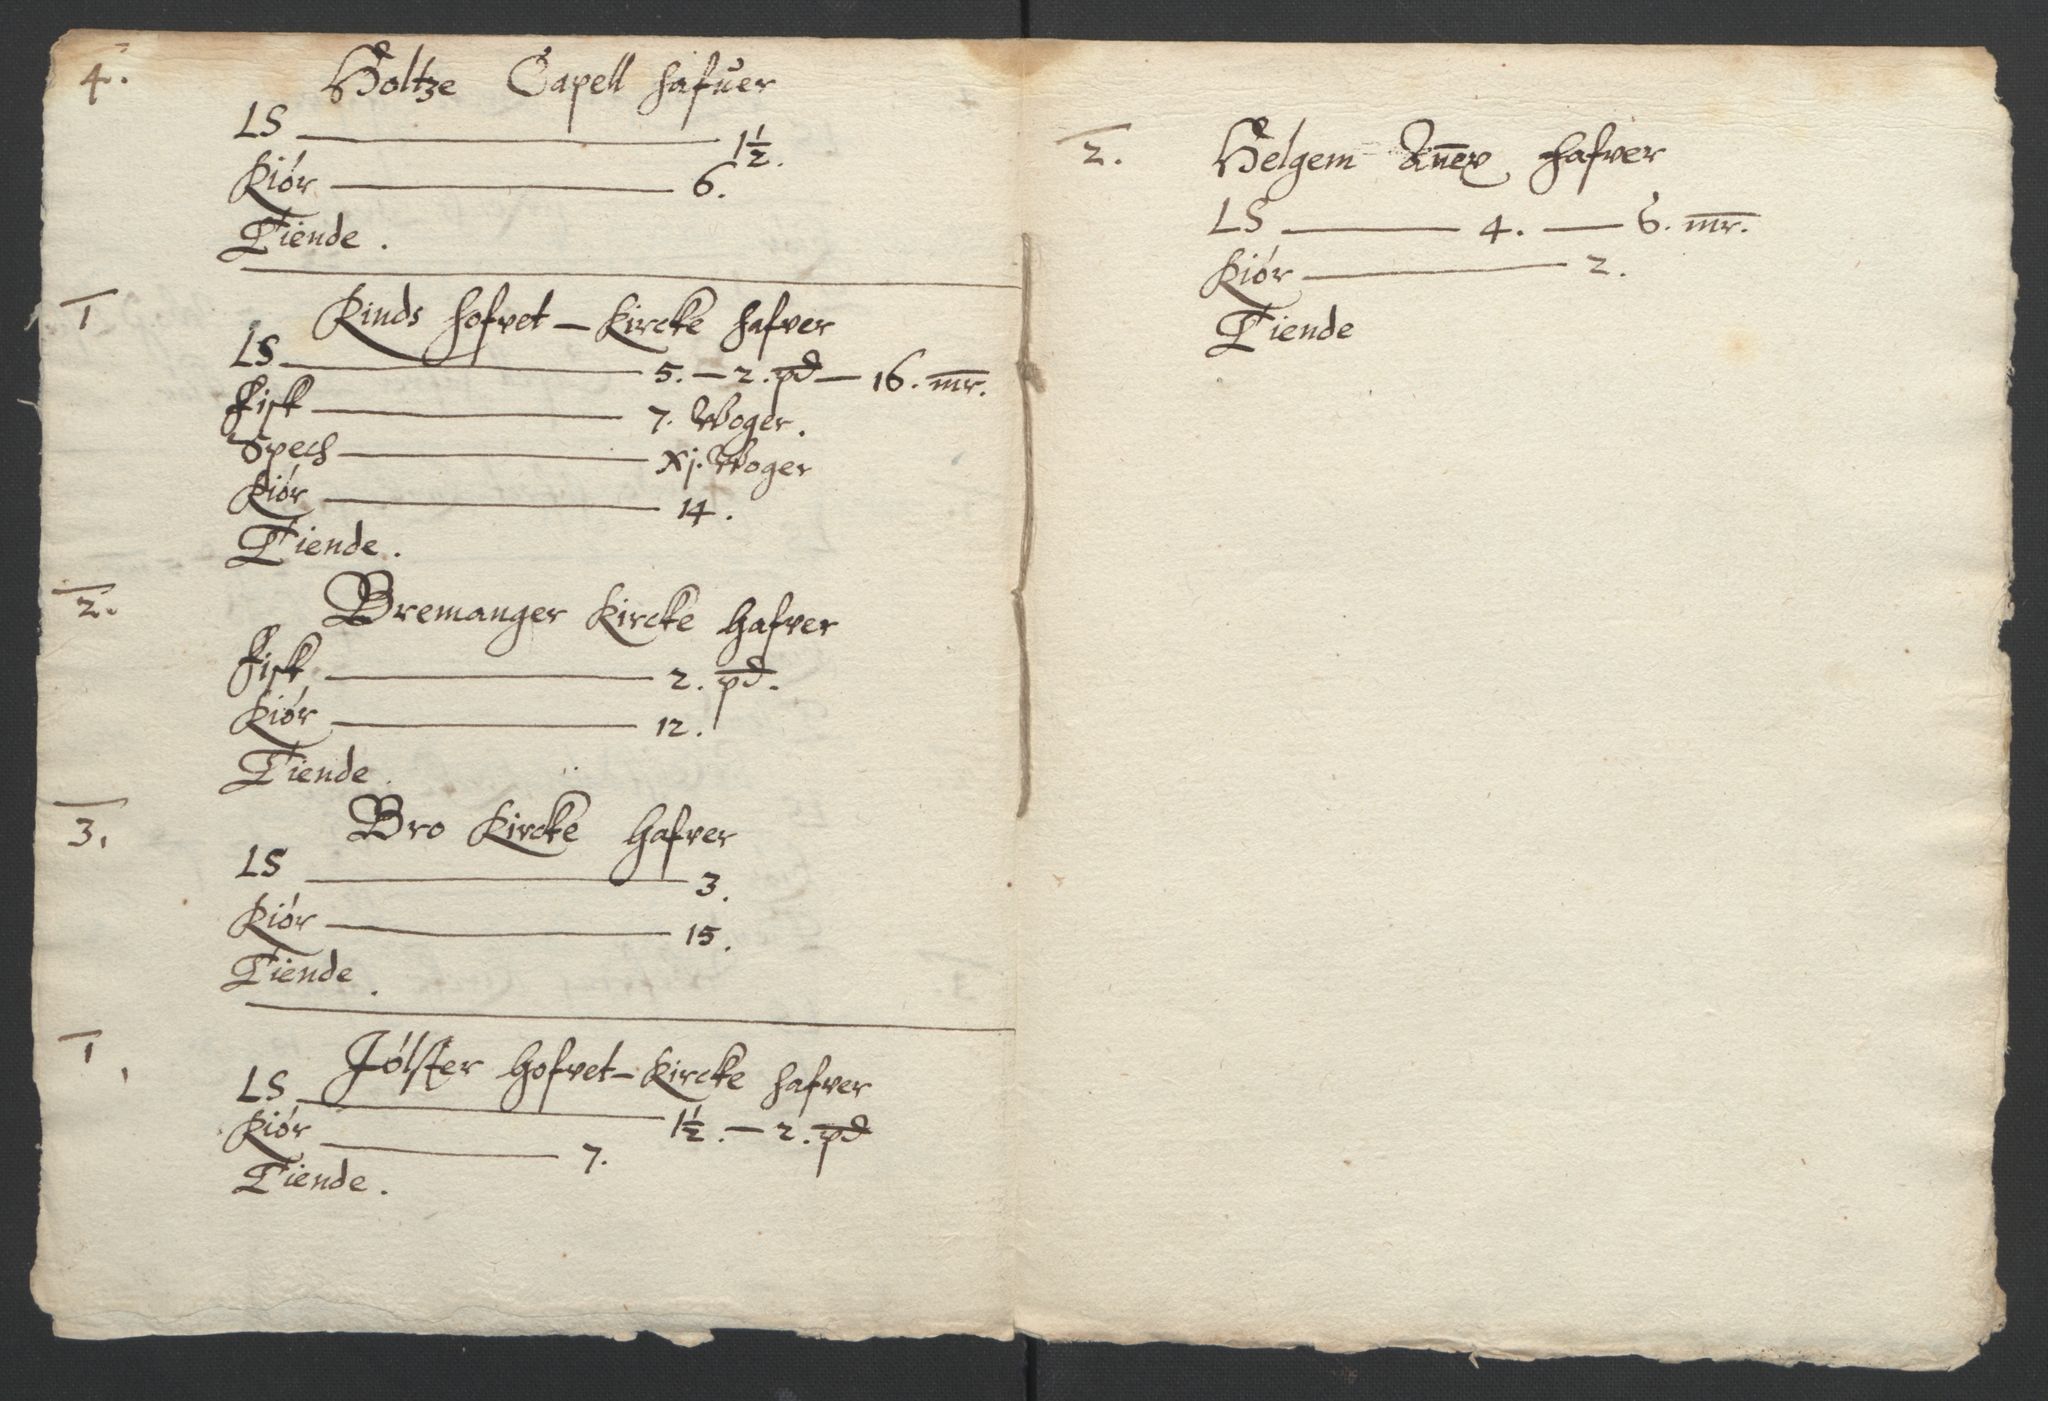 4. Holtze Capell hafuer
LS — 1½.
Kiór — 6.
Tiende.
1 Kinds hofvet – Kircke hafver
LS — 5. — 2. pd — 16. mr.
Fisk — 7. Woger.
Spech — xj. Woger
Kiór — 14.
Tiende.
2. Bremanger Kircke hafver
Fisk — 2. pd.
Kiór — 12.
Tiende.
3. Bro Kircke hafver
LS — 3.
Kiór — 15.
Tiende.
1. Jólster hofvet – Kircke hafver
LS — 1½. — 2. pd
Kiór — 7.
Tiende.
2. Helgem Añex hafver
LS — 4. — 6. mr.
Kiór — 2.
Tiende